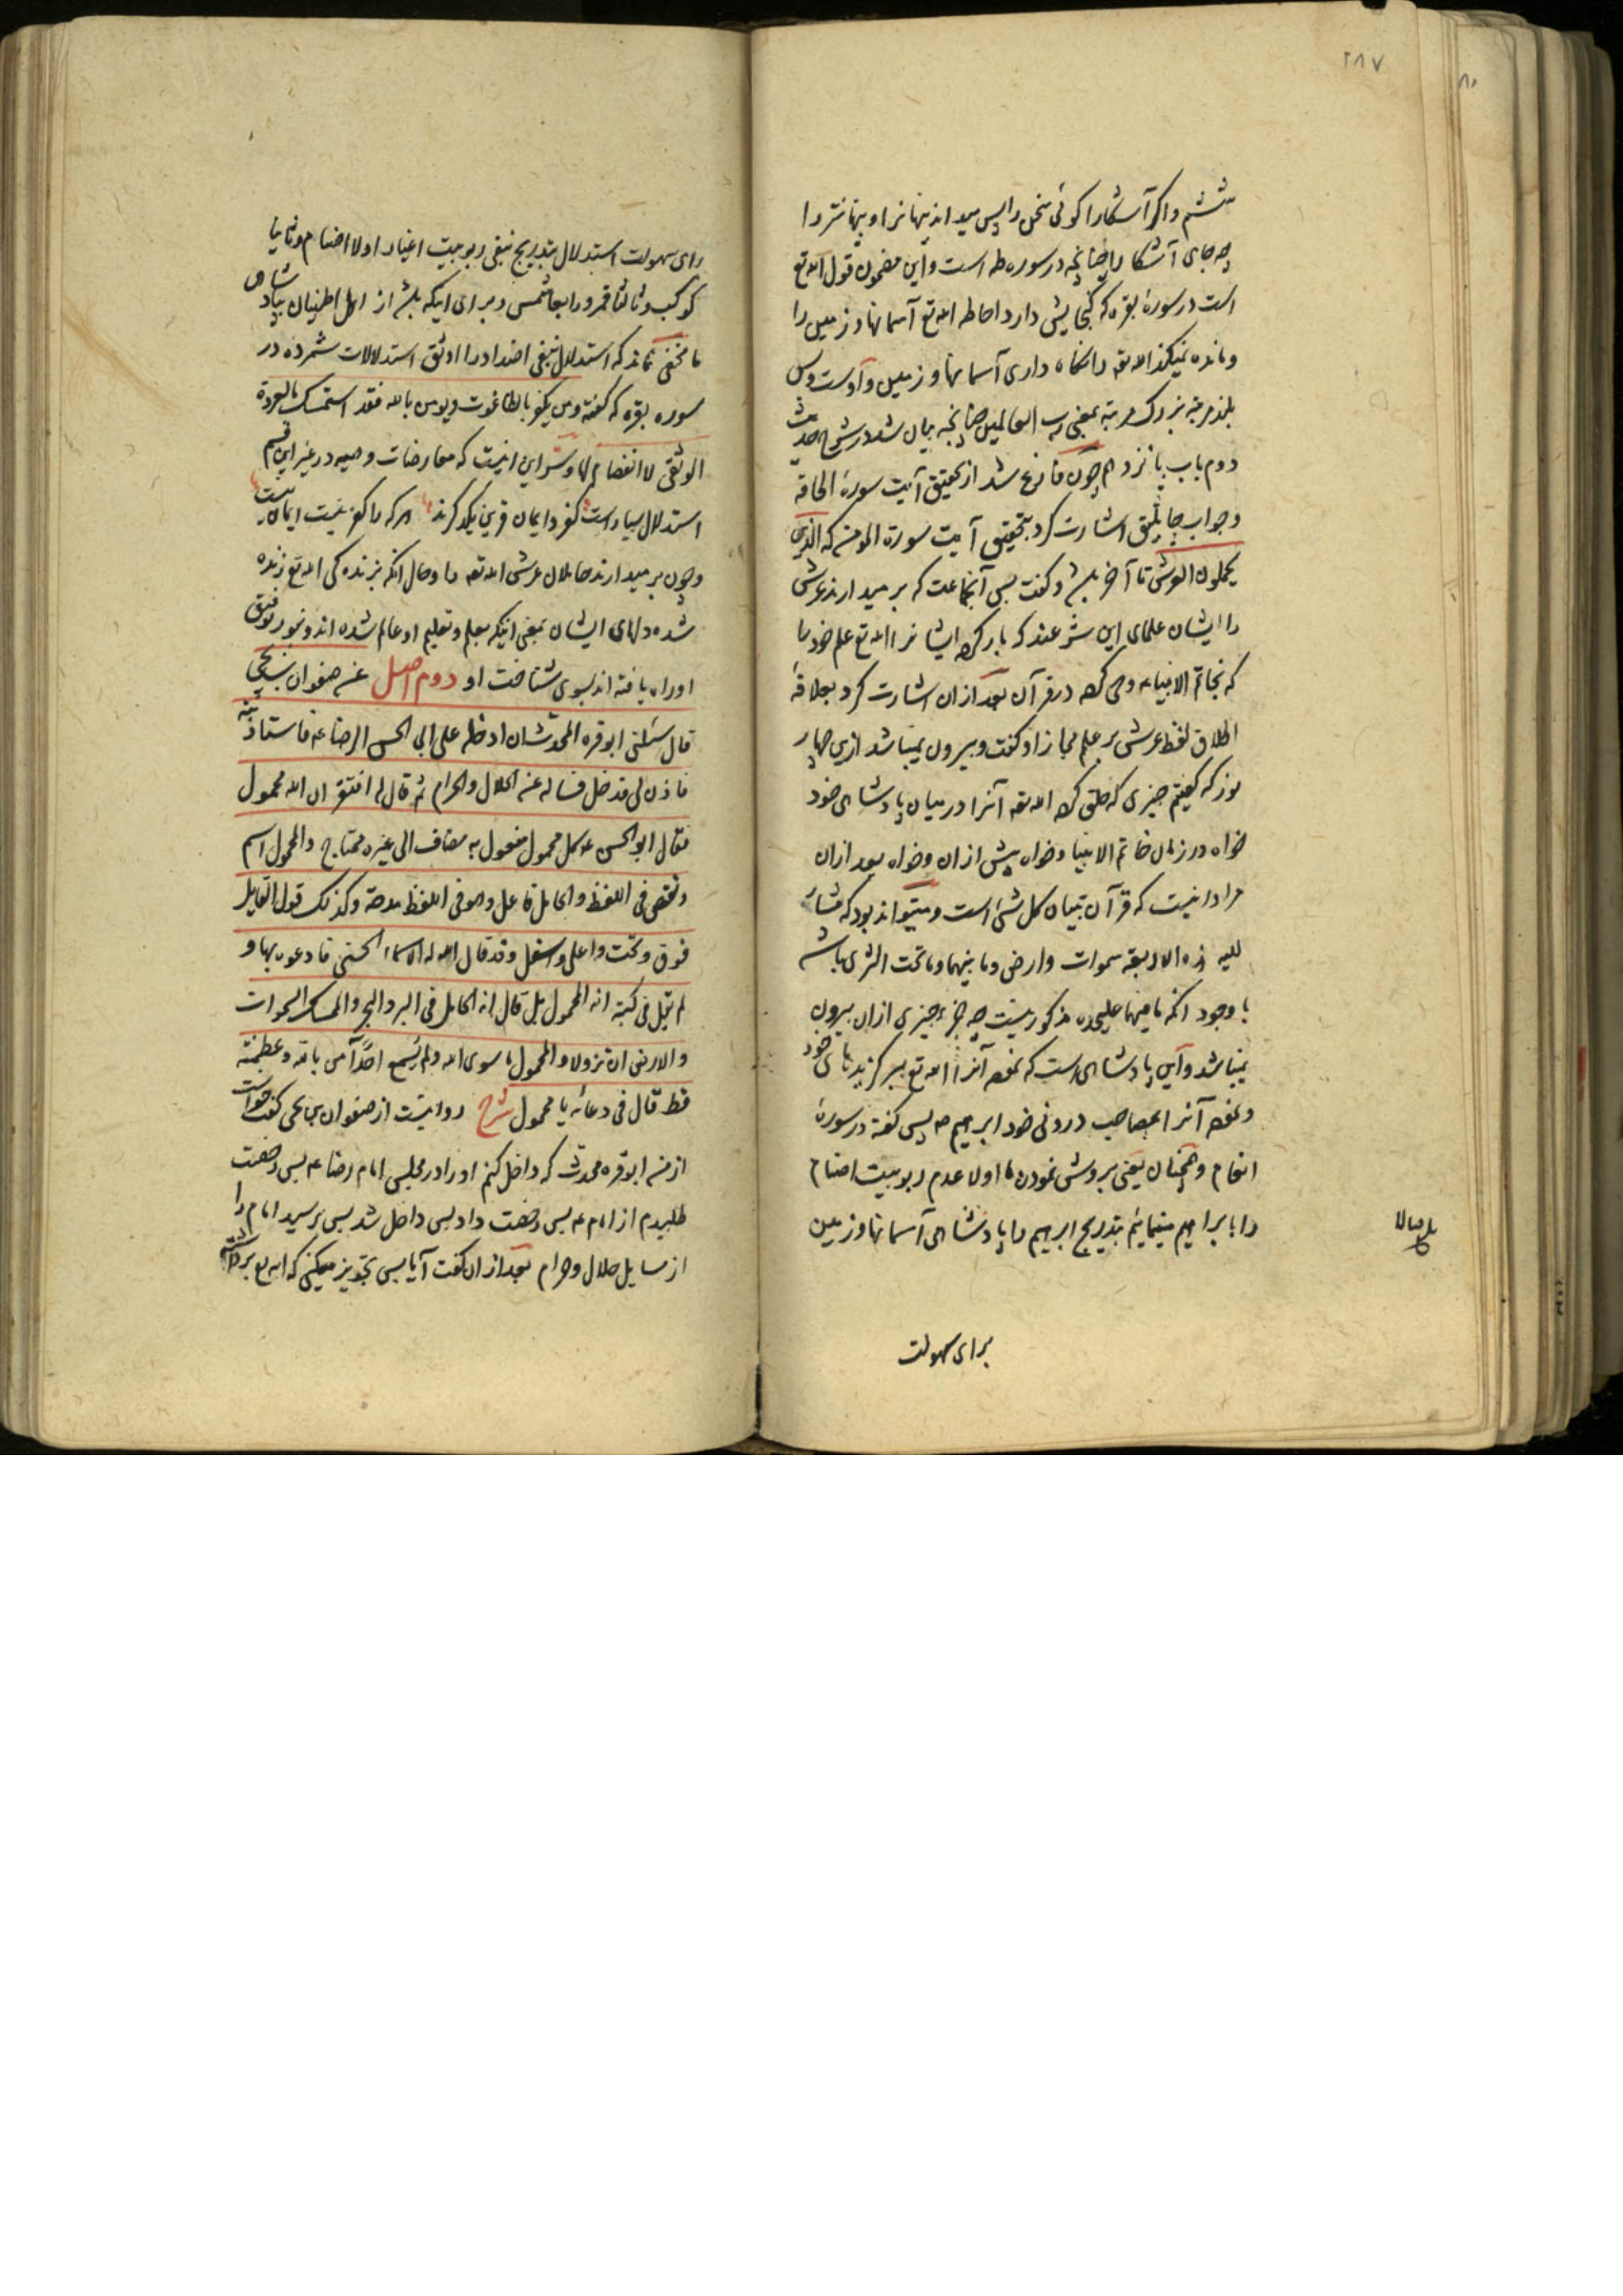 ۲۸۷
ششم و اگر آشکارا کوئی سخن را پس میداند پنهانرا و پنهانتر را
چه جای آشکارا چنانچه در سوره طه است و این مضمون قول الله تع
است در سورهٔ بقره که گنجایش دارد احاطه الله تع آسمانها و زمین را
و مانده نمیکند الله تعه را نگاه داری آسمانها و زمین و اوست و بس
بلند مرتبه بزرک مرتبه بمعنی رب العالمین چنانچه بیان شد در شرح حدیث
دوم باب یانزدهم چون فارغ شد از تحقیق آیت سورهٔ الحاقه
و جواب جاثلیق اشارت کرد بتحقیق آیت سورة المومن که الذین
یحملون العرش تا آخر باشد و کفت پس آنجماعت که بر میدارند عرش
را ایشان علمای این شرعند که بار کرده ایشانرا الله تع علم خود را
که بخاتم الانبیاء وحی کرده در قرآن بعد ازان اشارت کرد بعلاقهٔ
اطلاق لفظ عرش بر علم مجازا و کفت و بیرون نمیباشد ازین چهار
نور که کفتم چیزی که خلق کرده الله تعه آنرا در میان پادشاهی خود
خواه در زمان خاتم الانبیا و خواه پیش ازان و خواه بعد ازان
مراد اینست که قرآن تبیان کل شئ است و میتواند بود که مشار
الیه هذه الاربعة سموات و ارض و ما بینهما و ما تحت الثری باشد
با وجود آنکه ما فیهما علیحده مذکور نیست چه جزء چیزی ازان بیرون
نمیباشد و این پادشاهی است که نموده آنرا الله تع ببر کزیدهای خود
و نموده آنرا بمصاحب درونی خود ابرهیم ص پس کفته در سورهٔ
انعام و همچنان یعنی بروش نمودن ما اولا عدم ربوبیت اصنام
را بابراهیم مینمایئم بتدریج ابرهیم را پادشاهی آسمانها و زمین
برای سهولت
برای سهولت استدلال بتدریج بنفی ربوبیت اغیار اولا اصنام و ثانیا
کوکب و ثالثا قمر و رابعا شمس و برای اینکه باشد از اهل اطمینان بپادشاهی
ما مخفی نماند که استدلال بنفی اضداد را اوثق استدلالات شمرده در
سوره بقره که کفته و من یکفر بالطاغوت و یومن بالله فقد استمسک بالعروة
الوثقی لا انفصام لها و سر این اینست که معارضات وهمیه در غیر این قسم
استدلال بسیار است کفر و ایمان قرین یکدکرند هر که را کفر نیست ایمان نیست
و چون بر میدارند حاملان عرش الله تعه را و حال آنکه بزندکی الله تع زنده
شده دلهای ایشان بمعنی اینکه بعلم و تعلیم او عالم شده اند و بنور توفیق
او راه یافته اند بسوی شناخت او دوم اصل عن صفوان بن یحیی
قال سئلنی ابو قره المحدث ان ادخله علی ابی الحسن الرضا ع فاستاذنته
فاذن لی فدخل فساله عن الحلال و الحرام ثم قال له افتقر ان الله محمول
فقال ابو الحسن ع کل محمول مفعول به مضاف الی غیره محتاج و المحمول اسم
و نقص فی اللفظ و الحامل فاعل و هو فی اللفظ مدحة و کذلک قول القایل
فوق و تحت و اعلی و اسفل و قد قال الله له الاسماء الحسنی فادعوه بها و
لم یقل فی کتبه انه المحمول بل قال انه الحامل فی البر و البحر و الممسک السموات
و الارض ان تزولا و المحمول ما سوی الله و لم یسمع احد آمن بالله و عظمته
قط قال فی دعائه یا محمول شرح روایتست از صفوان بن یحیی کفت خواست
از من ابو قره محدث که داخل کنم او را در مجلس امام رضا ع پس رخصت
طلبیدم از امام ع پس رخصت داد پس داخل شد پس پرسید امام را
از مسایل حلال و حرام بعد ازان کفت آیا پس تجویز میکنی که الله تع برداشته